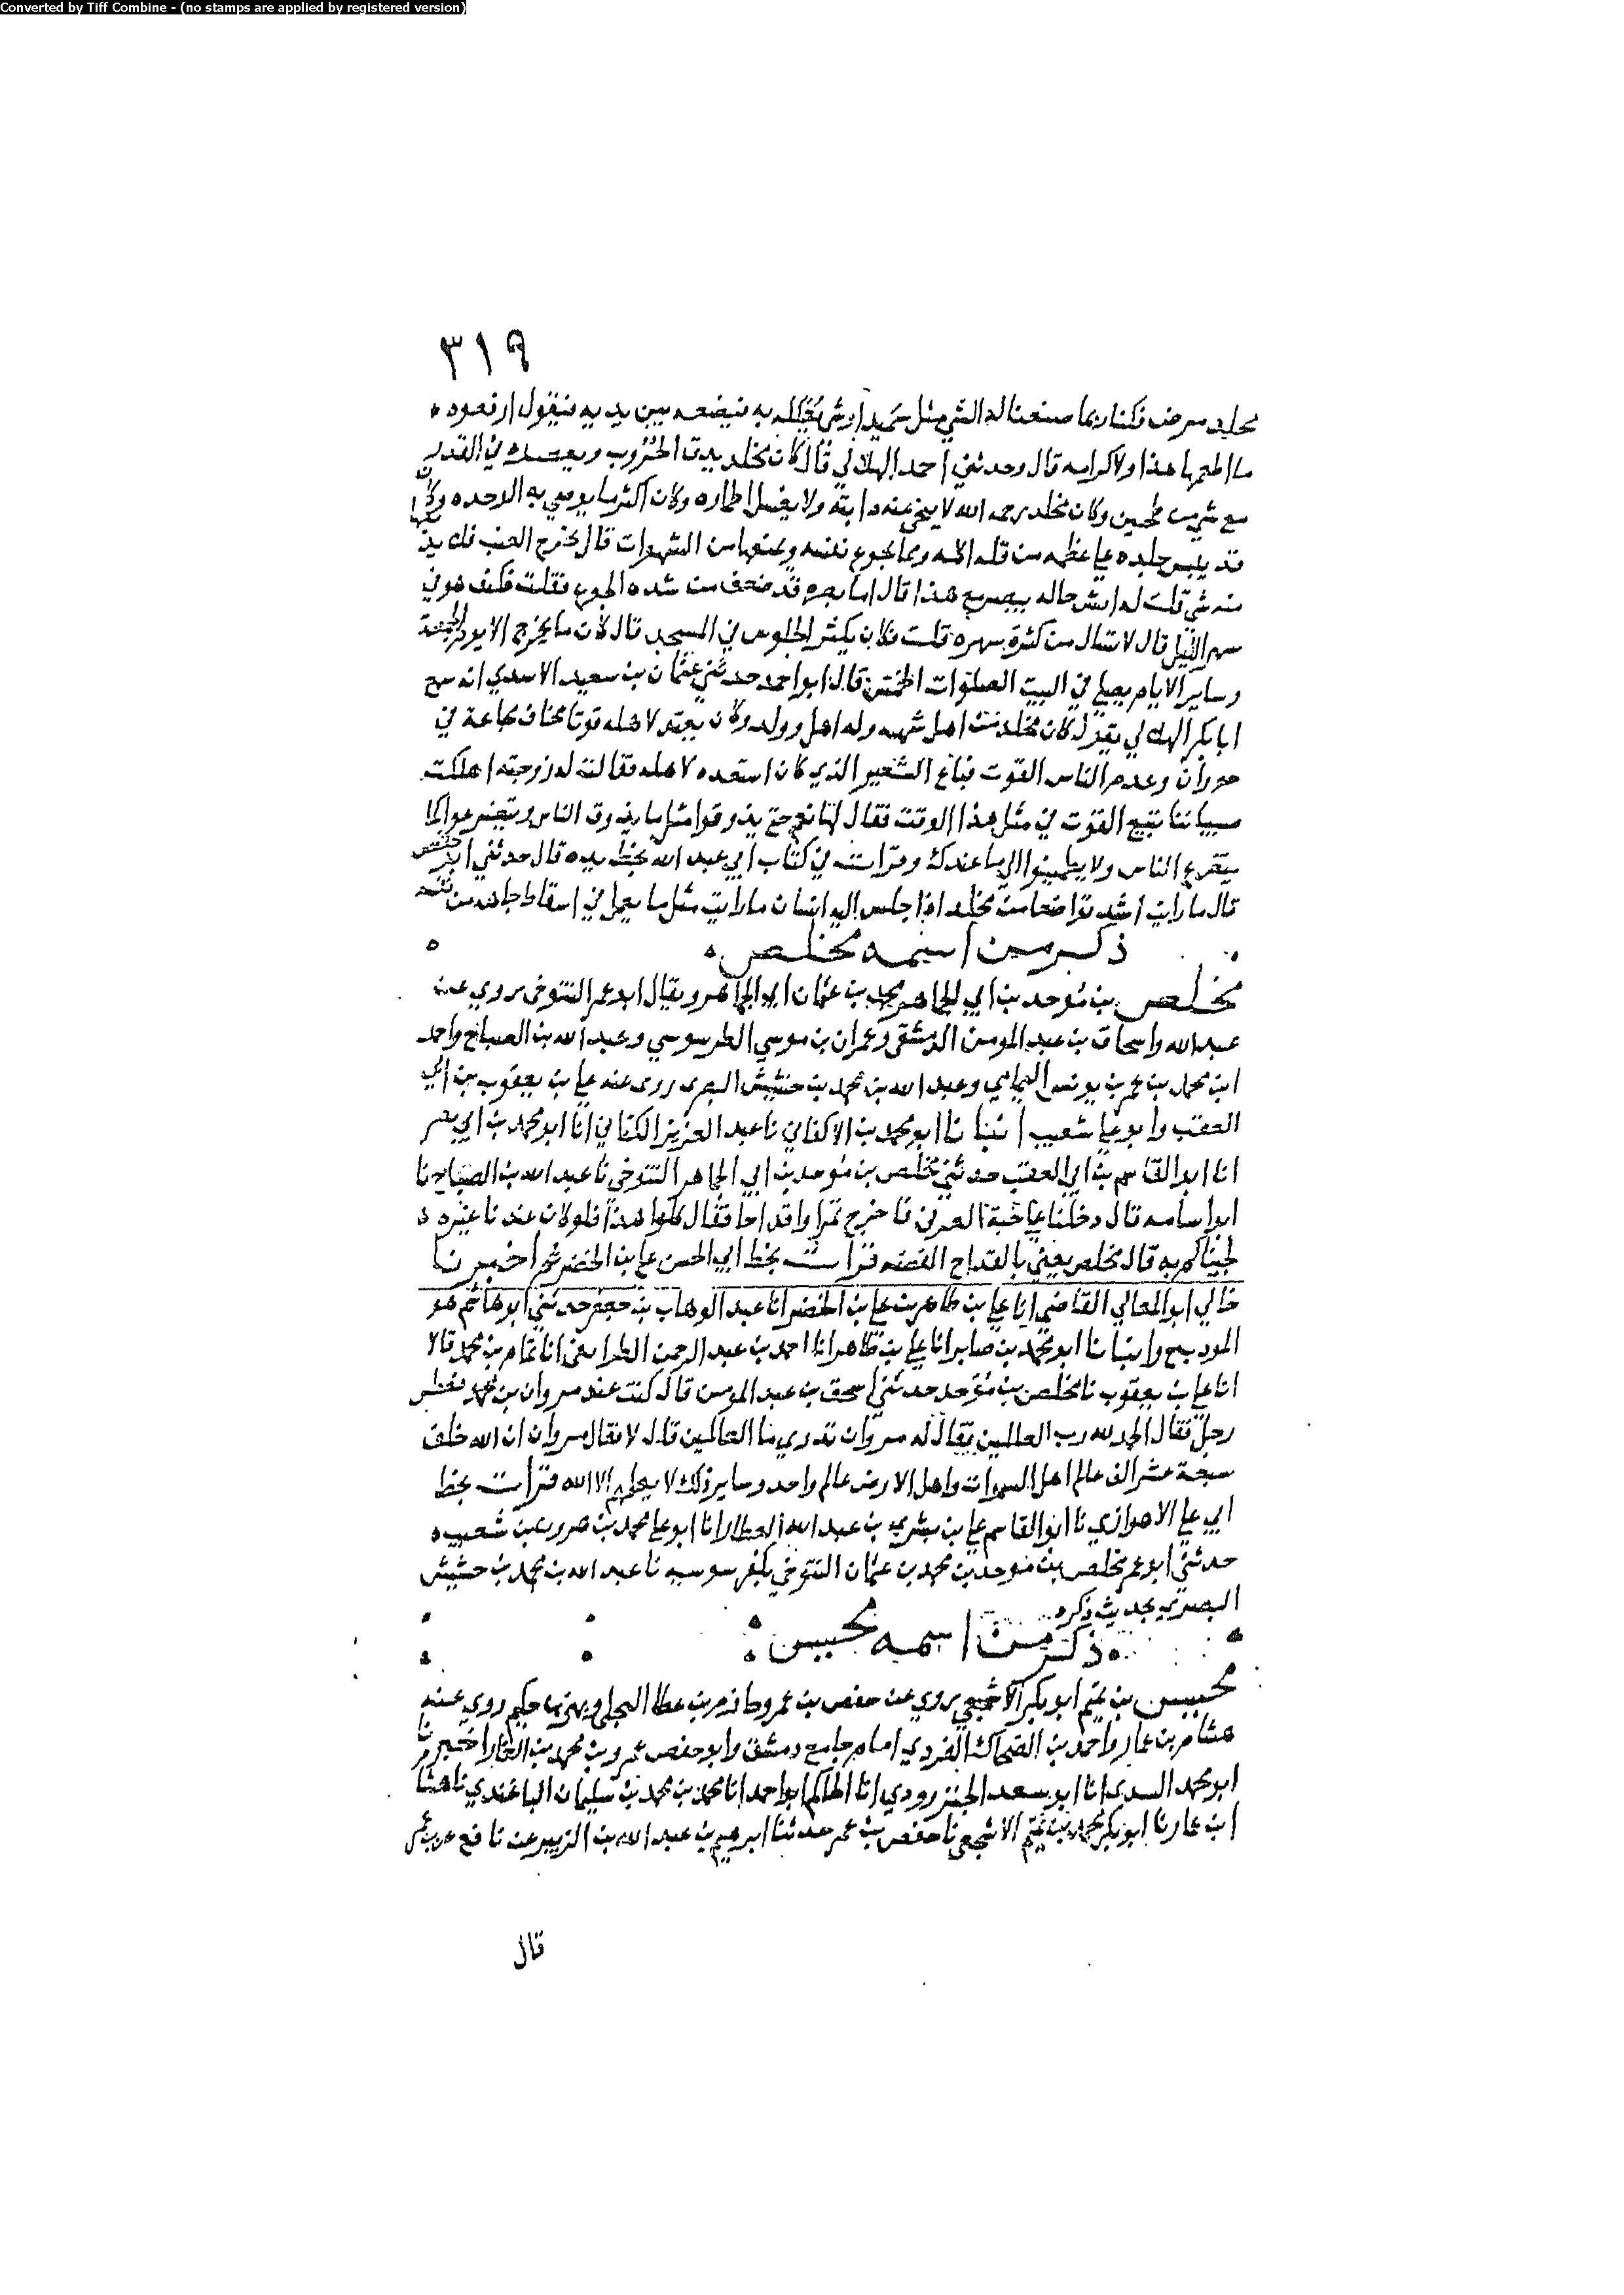 Converted by Tiff Combine - (no stamps are applied by registered version)
٣١٩
مخلد مرض فكنا ربما صنعنا له الشي مثل سميد او شي فيضعه بين يديه فيقول ارفعوه
ما اطعمها هذا ولا كرامه قال وحدثني احمد الهلالي قال كان مخلد يدق الخروب في القدر
وكان مخلد رحمه الله دابته ولا يغسل اطماره وكان اكثر ما يوصي به الوحده وكان
قد يبس جلده علي عظمه من قله ويمنعها من الشهوات قال يخرج العنب فلا يذق
منه شي قلت له ايش حال بصره هذا قال اما بصره قد ضعف من شده الجوع فقلت فكيف هو في
سهر الليل قال لا تسال من كثرة سهره قلت فكان يكثر الجلوس في المسجد قال كان ما يخرج الا يوم الجمعة
وساير الايام يصلي في البيت الصلوات الخمس قال ابو احمد حدثني عثمان بن سعيد الاسدي انه سمع
ابا بكر الهلالي يقول كان مخلد وله اهل وولد وكان يعتد لاهله قوتا مجاعة في
حوران وعدم الناس القوت فباع الشعير الذي كان استعده لاهله فقالت له زوجته اهلكت
صبياننا تبيع القوت في مثل هذا الوقت فقال لها نعم حتي يذوقوا مثل ما يذوق الناس ويتضرعوا كما
يتضرع الناس ولا يطمينوا الي ما عندك وقرات في كتاب ابي عبد الله بخط يده قال حدثني ابو حفص
قال ما رايت اشد تواضعا من مخلد اذا جلس اليه انسان ما رايت مثل ما يعمل في اسقاط جاهه من نفسه
ذكر من اسمه مخلص
مخلص بن موحد بن ابي الجماهر محمد بن عثمان ابو الجماهر ويقال ابو عمر التنوخي روي عن
عبد الله واسحاق بن عبد المومن الدمشقي وعمران بن موسي الطرسوسي وعبد الله بن الصباح واحمد
ابن محمد بن عمر بن يونس اليمامي وعبد الله بن محمد بن حشيش البصري روي عنه علي بن يعقوب بن ابي
العقب وابو علي شعيب انبانا ابو محمد بن الاكفاني نا عبد العزيز الكتاني انا ابو محمد بن ابي نصر
انا ابو القاسم بن ابي العقب حدثني مخلص بن موحد بن ابي الجماهر التنوخي نا عبد الله بن الصباح نا
ابو اسامه قال دخلنا علي حبة العرني فاخرج تمرا واقداحا فقال كلوا هذا فلو كان عندنا غيره
لجيناكم به قال مخلص يعني بالقداح الفضه قرات بخط ابي الحسن علي بن الخضر ثم اخبرنا
خالي ابو المعالي القاضي انا علي بن طاهر بن علي بن الخضر انا عبد الوهاب بن جعفر حدثني ابو هاشم هو
المودب ح وانبانا ابو محمد بن صابر انا علي بن طاهر انا احمد بن عبد الرحمن الطرايفي انا تمام بن محمد قالا
انا علي بن يعقوب نا مخلص بن موحد حدثني اسحق بن عبد المومن قال كنت عند مروان بن محمد فعطس
رجل فقال الحمد لله رب العالمين فقال له مروان تدري ما العالمين قال لا فقال مروان ان الله خلق
سبعة عشر الف عالم اهل السموات واهل الارض عالم واحد وساير ذلك لا يعلمهم الا الله قرات بخط
ابي علي الاهوازي نا ابو القاسم علي بن بشري بن عبد الله العطار انا ابو علي محمد بن هرون بن شعيب
حدثني ابو عمر مخلص بن موحد بن محمد بن عثمان التنوخي بكفرسوسيه نا عبد الله بن محمد بن حشيش
البصري بحديث ذكره
ذكر من اسمه محيس
محيس بن تميم ابو بكر الاشجعي يروي عن حفص بن عمر وحازم بن عطا البجلي وبهز بن حكيم روي عنه
هشام بن عمار واحمد بن الضحاك القردي امام جامع دمشق وابو حفص عمر بن محمد بن الغاز اخبرنا
ابو محمد السدي انا ابو سعد الجنزرودي انا الحاكم ابو احمد انا محمد بن محمد بن سليمان الباغندي نا هشام
ابن عمار نا ابو بكر محيس بن تميم الاشجعي نا حفص بن عمر حدثنا ابرهيم بن عبد الله بن الزبير عن نافع عن ابن عمر
قال